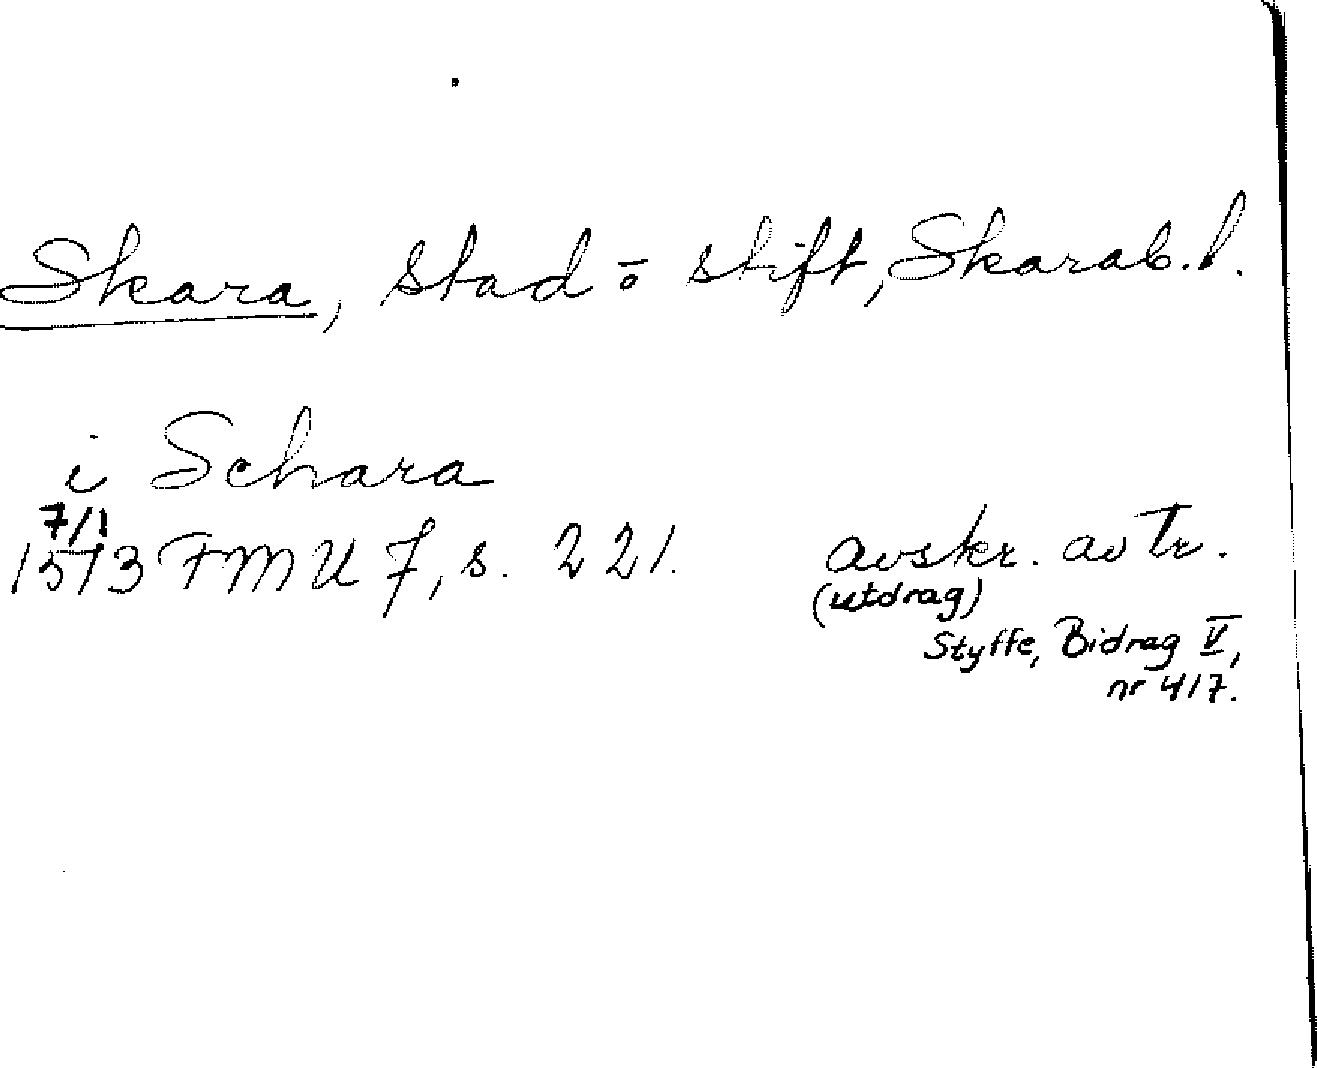 Skara, stad o stift, Skarab.l.
i Schara
7/1
1513 FMU 7, s. 221. avskr. av Tr.
(utdrag)
Styffe, Bidrag V,
nr 417.